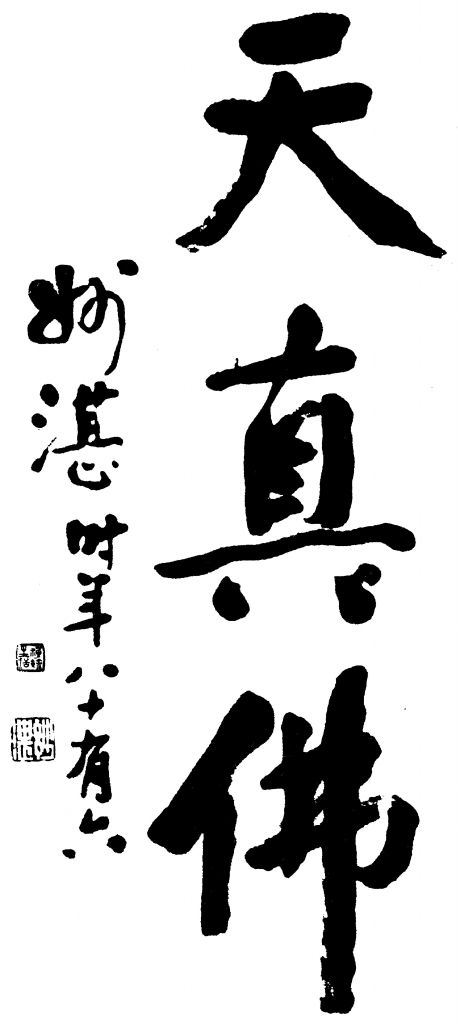 天真佛
妙湛时年八十有六